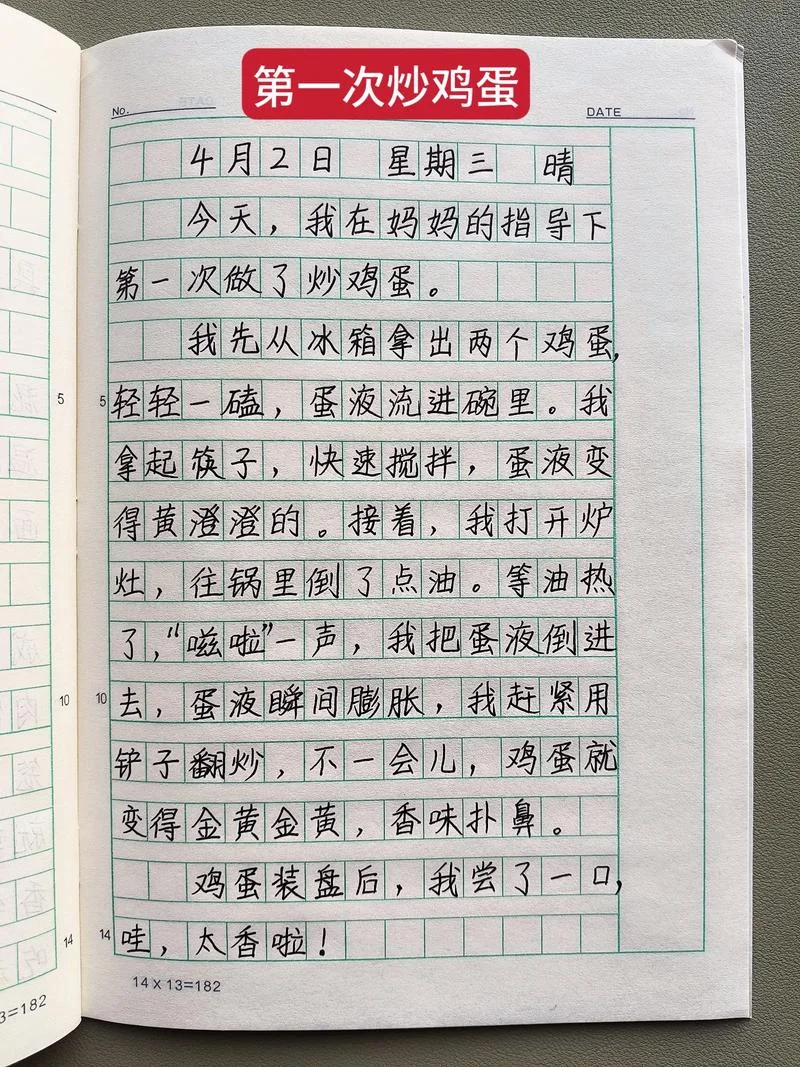 第一次炒鸡蛋
No.
DATE
4月2日 星期三 晴
今天，我在妈妈的指导下
第一次做了炒鸡蛋。
我先从冰箱拿出两个鸡蛋，
5 轻轻一磕，蛋液流进碗里。我
拿起筷子，快速搅拌，蛋液变
得黄澄澄的。接着，我打开炉
灶，往锅里倒了点油。等油热
了，“嗞啦”一声，我把蛋液倒进
10 去，蛋液瞬间膨胀，我赶紧用
铲子翻炒，不一会儿，鸡蛋就
变得金黄金黄，香味扑鼻。
鸡蛋装盘后，我尝了一口，
14 哇，太香啦！
14×13=182
5
10
14
3=182